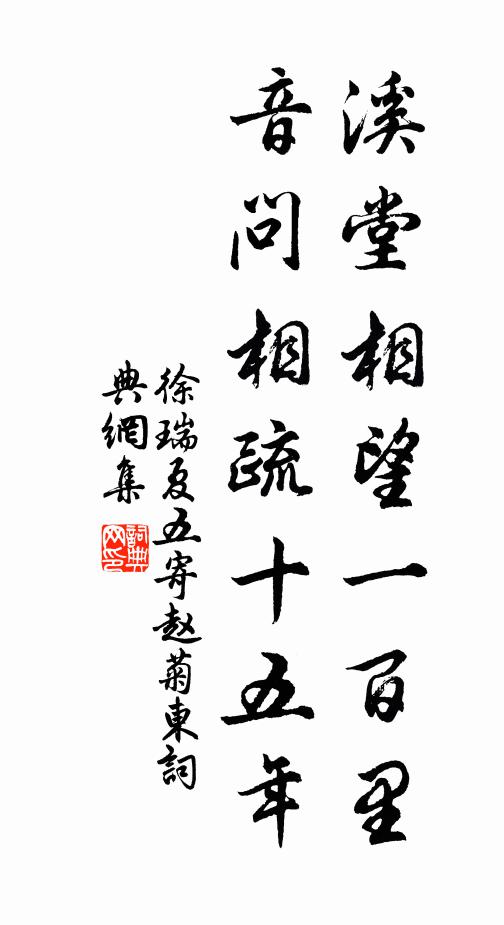 溪堂相望一百里
音問相疏十五年
徐瑞夏五寄赵菊東詞
典網集
詞典
网印